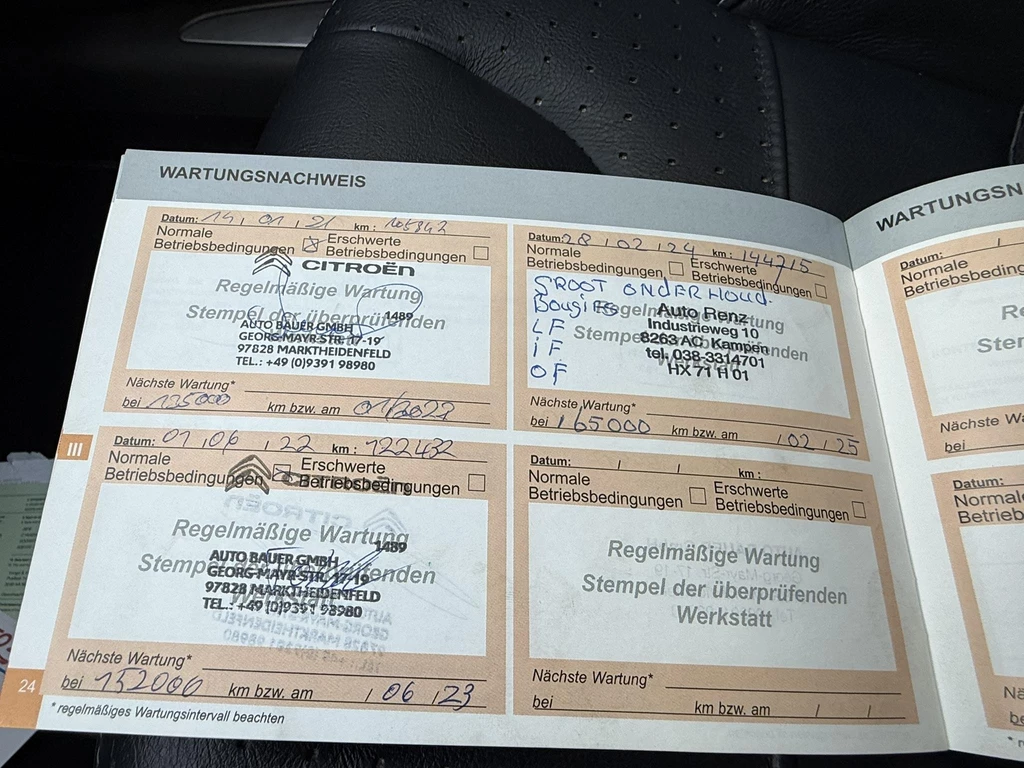 WARTUNGSNACHWEIS
Datum: 14, 01, 21 km: 105842
Normale Betriebsbedingungen ☒ Erschwerte Betriebsbedingungen ☐
CITROËN
Regelmäßige Wartung
Stempel der überprüfenden
1489
AUTO BAUER GMBH
GEORG-MAYR-STR. 17-19
97828 MARKTHEIDENFELD
TEL.: +49 (0)9391 98980
Nächste Wartung*
bei 135000 km bzw. am 01/2023
Datum: 01, 06, 22 km: 122432
Normale Betriebsbedingungen ☒ Erschwerte Betriebsbedingungen ☐
CITROËN
Regelmäßige Wartung
Stempel der überprüfenden
Werkstatt
1489
AUTO BAUER GMBH
GEORG-MAYR-STR. 17-19
97828 MARKTHEIDENFELD
TEL.: +49 (0)9391 98980
Nächste Wartung*
bei 152000 km bzw. am / 06 / 23
* regelmäßiges Wartungsintervall beachten
24
III
Datum: 28, 02, 24 km: 144715
Normale Betriebsbedingungen ☐ Erschwerte Betriebsbedingungen ☐
GROOT ONDERHOUD.
Bougies
LF
iF
OF
Regelmäßige Wartung
Stempel der überprüfenden
Werkstatt
Auto Renz
Industrieweg 10
8263 AC Kampen
tel. 038-3314701
HX 71 H 01
Nächste Wartung*
bei 165000 km bzw. am / 02 / 25
Datum: / / km:
Normale Betriebsbedingungen ☐ Erschwerte Betriebsbedingungen ☐
Regelmäßige Wartung
Stempel der überprüfenden
Werkstatt
Nächste Wartung*
bei km bzw. am / /
WARTUNGSN
Datum: /
Normale
Betriebsbeding
Reg
Ster
Nächste Wa
bei
Datum:
Normale
Betriebsbe
Nä
be